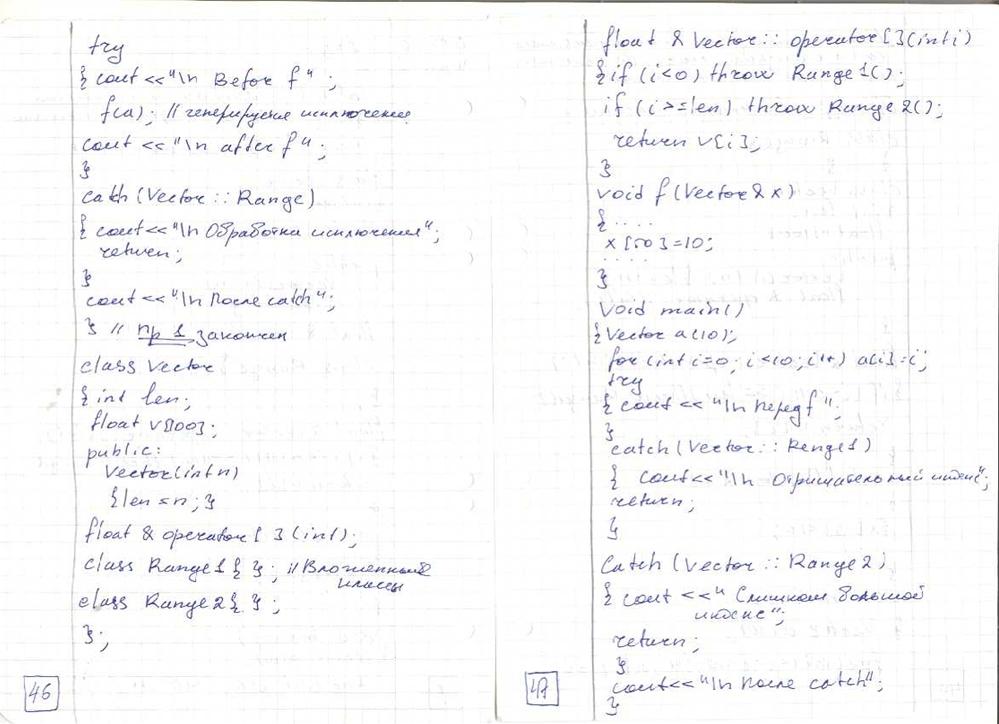 try
{ cout <<"\n Befor f" ;
f(a); // генерируется исключение
cout << "\n after f" ;
}
catch (Vector :: Range)
{ cout <<"\n Обработка исключения";
return;
}
cout << "\n После catch";
} // пр 1 закончен
class Vector
{ int len;
float v[100];
public:
Vector(int n)
{len = n; }
float & operator [ ] (int);
class Range1 { }; // Вложенные
классы
class Range2 { };
};
46
float & Vector :: operator [ ] (int i)
{ if (i<0) throw Range1();
if (i>=len) throw Range2();
return v[i];
}
void f (Vector & x)
{ ....
x [50] = 10;
....
}
void main()
{ Vector a(10);
for (int i=0; i<10; i++) a[i]=i;
try
{ cout << "\n перед f";
}
catch (Vector :: Renge1)
{ cout << "\n Отрицательный индекс";
return;
}
catch (Vector :: Range2)
{ cout <<" Слишком большой
индекс";
return;
}
cout<<"\n После catch";
}
47